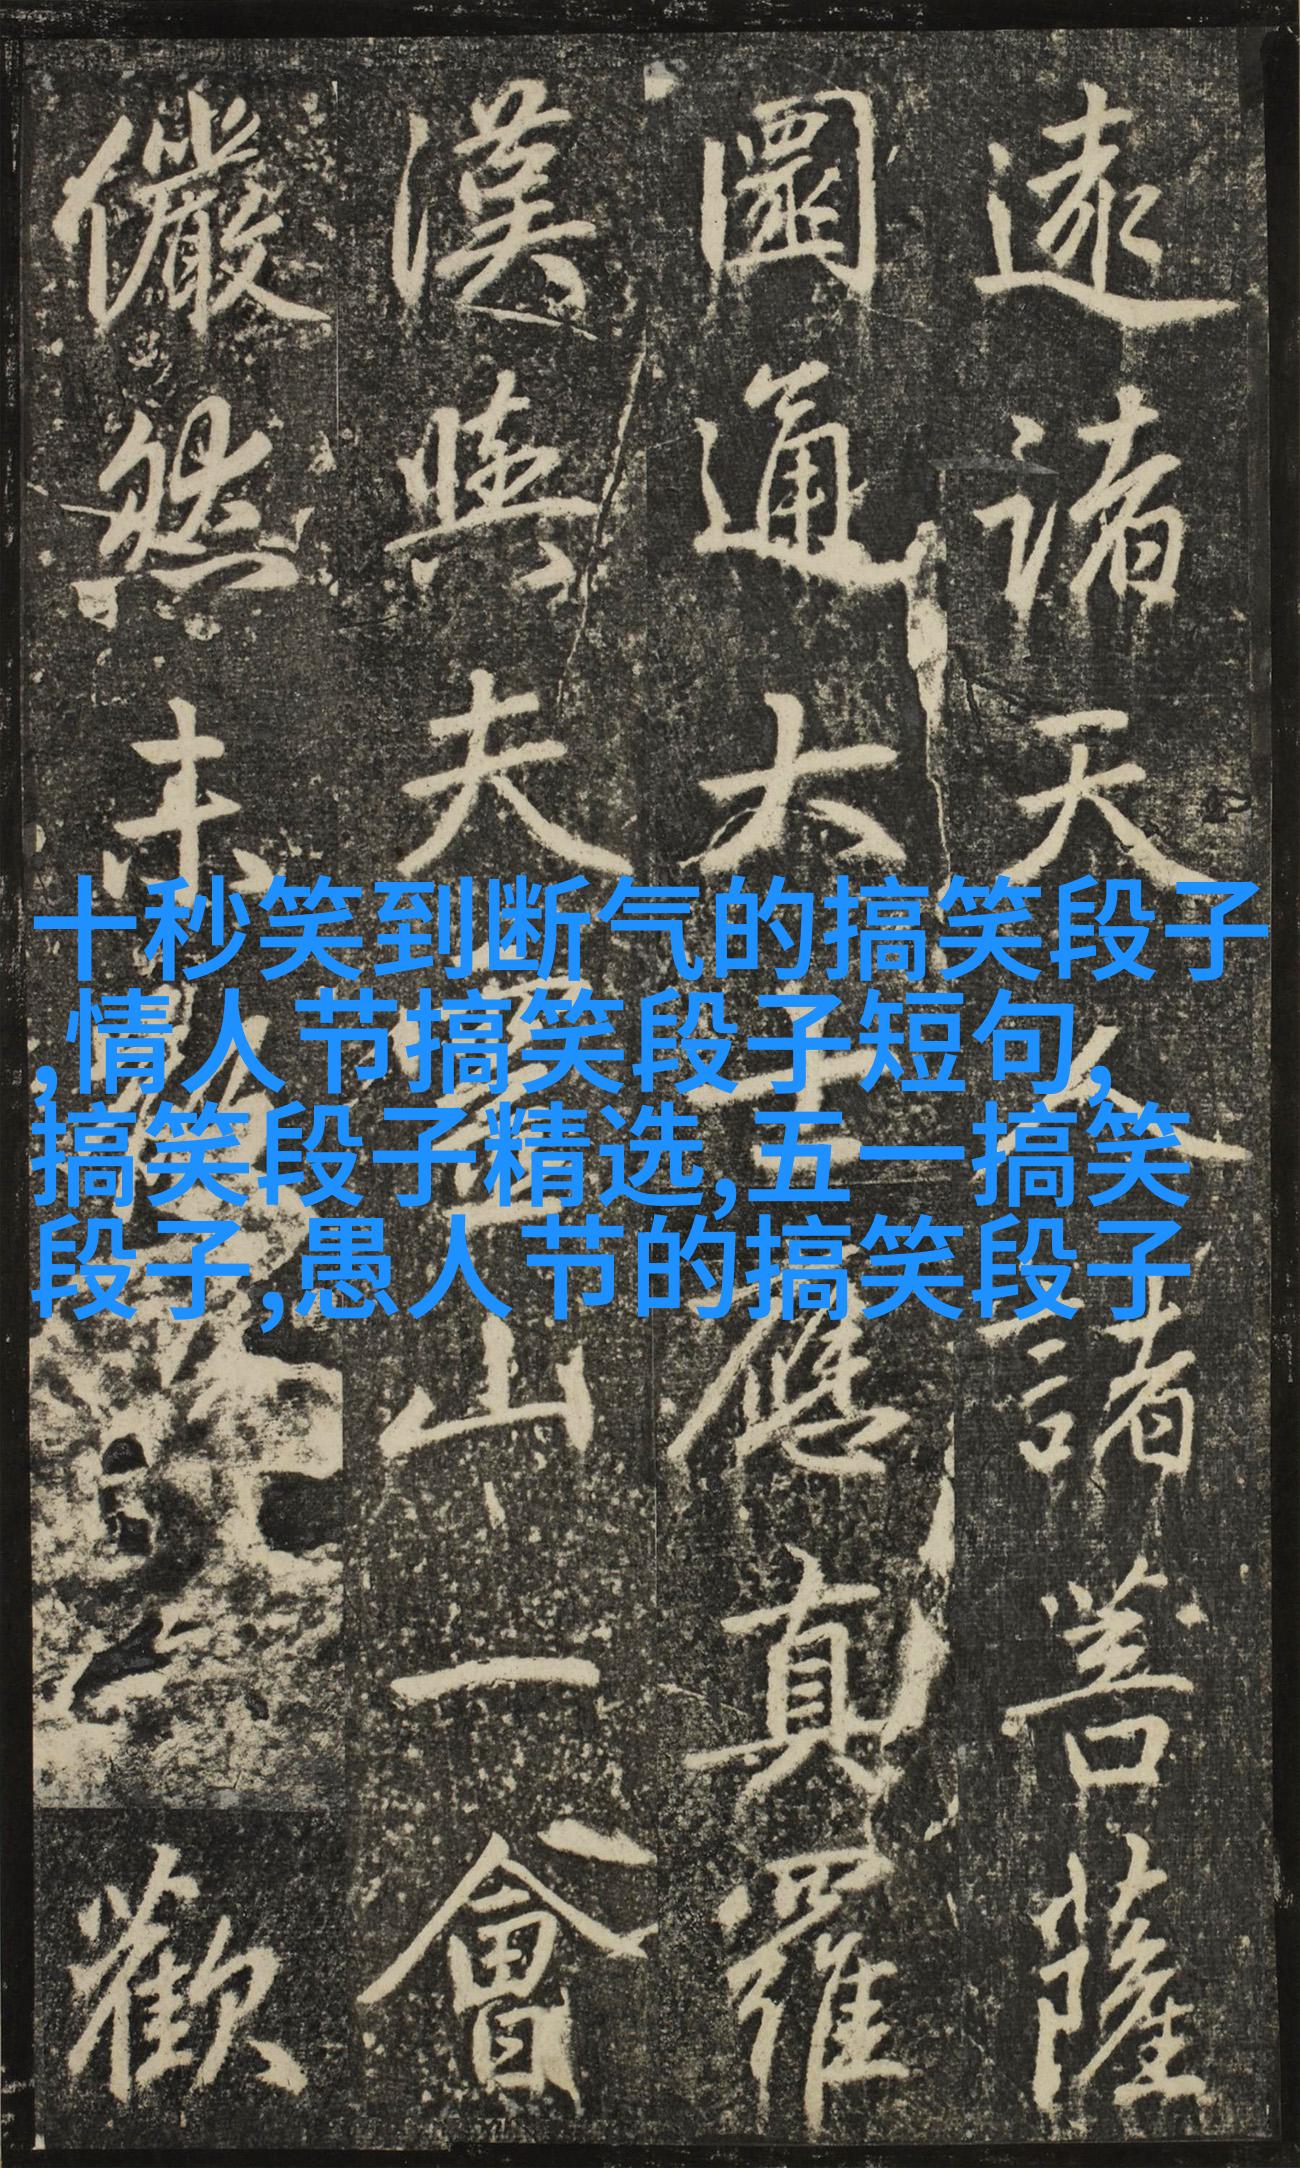 遠諸天人諸善薩
圓通大士應真羅
漢與夫靈山一會
儼然未散
歡
十秒笑到断气的搞笑段子
,情人节搞笑段子短句,
搞笑段子精选,五一搞笑
段子,愚人节的搞笑段子